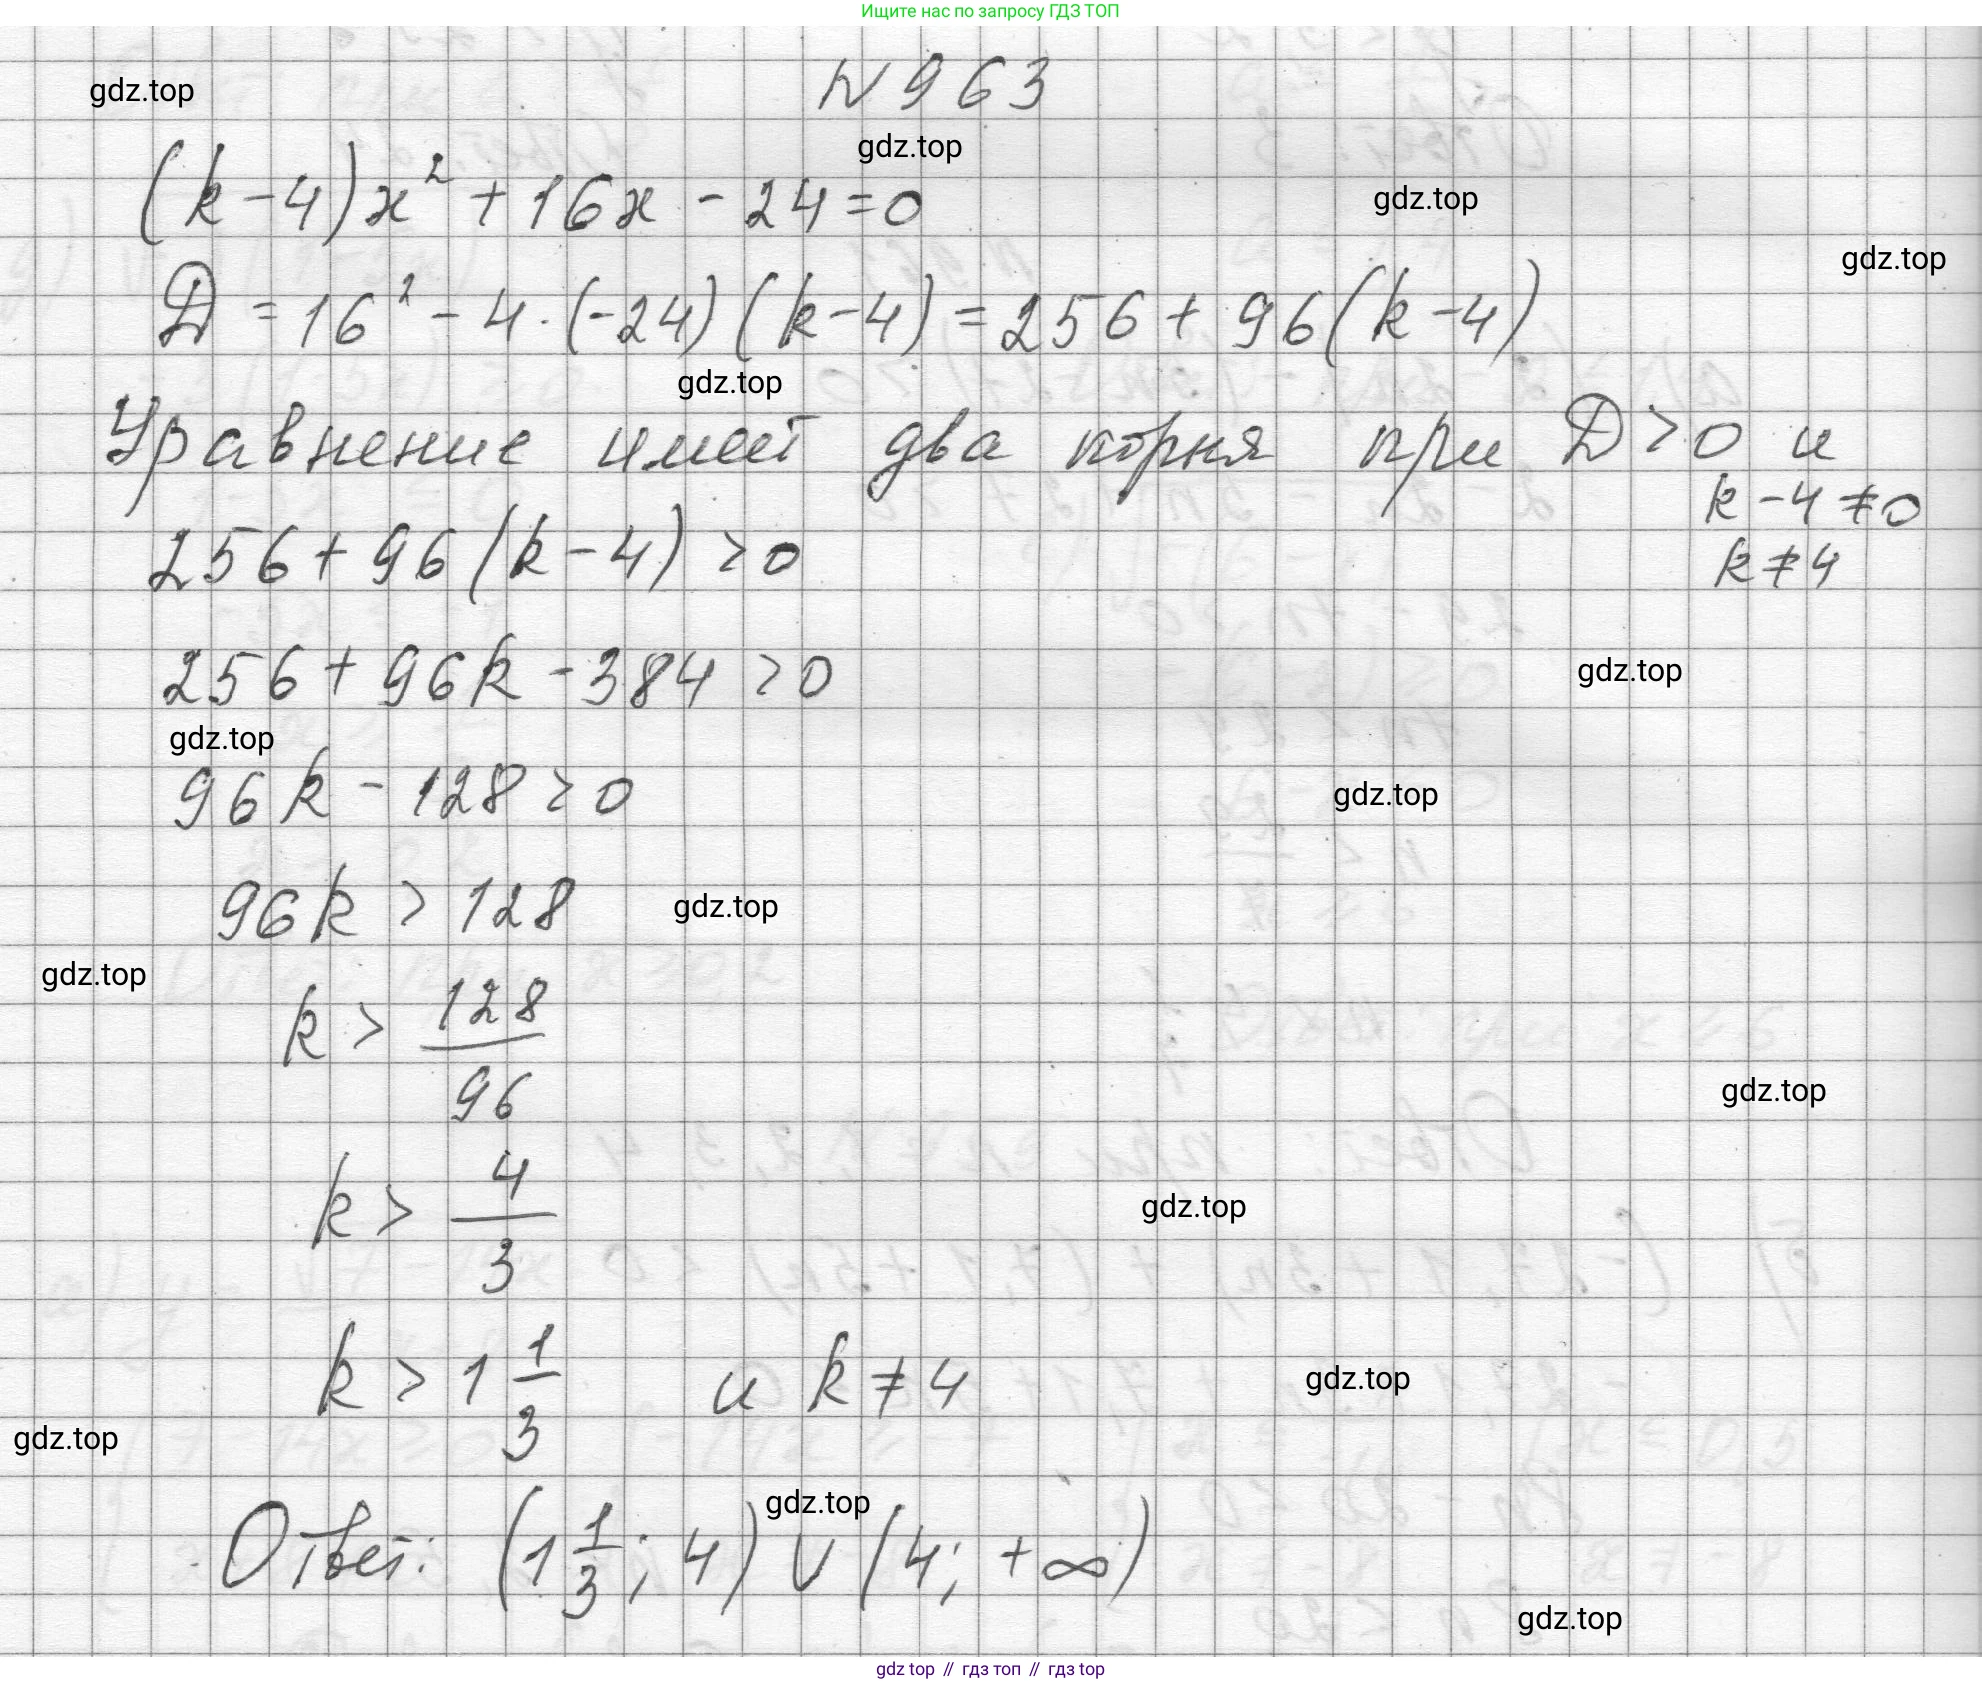 Ищите нас по запросу ГДЗ ТОП
N 963
gdz.top
gdz.top
(k-4)x² + 16x - 24 = 0
gdz.top
gdz.top
D = 16² - 4·(-24)(k-4) = 256 + 96(k-4)
gdz.top
Уравнение имеет два корня при D > 0 и
k - 4 ≠ 0
256 + 96(k-4) > 0
k ≠ 4
256 + 96k - 384 > 0
gdz.top
gdz.top
96k - 128 > 0
gdz.top
96k > 128
gdz.top
gdz.top
k > 128/96
gdz.top
k > 4/3
gdz.top
k > 1 1/3 и k ≠ 4
gdz.top
gdz.top
gdz.top
Ответ: (1 1/3; 4) ∪ (4; +∞)
gdz.top
gdz top // гдз топ // гдз top